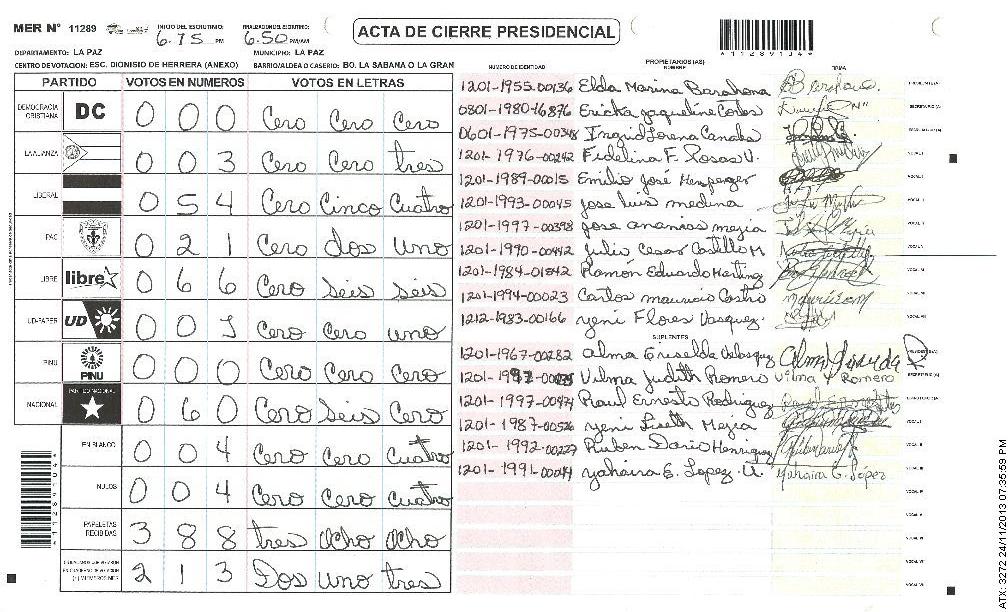 MER N° 11289
INICIO DEL ESCRUTINIO: 6.15 PM
FINALIZACION DEL ESCRUTINIO: 6.50 PM/AM
ACTA DE CIERRE PRESIDENCIAL
*11289134*
DEPARTAMENTO: LA PAZ
MUNICIPIO: LA PAZ
CENTRO DE VOTACION: ESC. DIONISIO DE HERRERA (ANEXO)
BARRIO/ALDEA O CASERIO: BO. LA SABANA O LA GRAN
PARTIDO VOTOS EN NUMEROS VOTOS EN LETRAS
DEMOCRACIA CRISTIANA DC 0 0 0 Cero Cero Cero
LA ALIANZA 0 0 3 Cero Cero tres
LIBERAL 0 5 4 Cero Cinco Cuatro
PAC 0 2 1 Cero dos uno
LIBRE libre 0 6 6 Cero Seis Seis
UD-FAPER UD 0 0 1 Cero Cero uno
PINU PINU 0 0 0 Cero Cero Cero
NACIONAL PARTIDO NACIONAL 0 6 0 Cero Seis Cero
EN BLANCO 0 0 4 Cero Cero Cuatro
NULOS 0 0 4 Cero Cero Cuatro
PAPELETAS RECIBIDAS 3 8 8 tres Ocho Ocho
2 1 3 Dos uno tres
NUMERO DE IDENTIDAD
PROPIETARIOS (AS)
NOMBRE
FIRMA
1201-1955-00136 Elda Marina Barahona
0801-1980-16876 Ericka Jaqueline
0601-1975-00348 Ingrid Lorena Canales
1201-1976-00242 Fidelina F. Rosas V.
1201-1989-00015 Emilio José
1201-1993-00045 Jose luis medina
1201-1997-00398 jose ananias mejia
1201-1990-00442 Julio Cesar Castillo M
1201-1984-01842 Ramón Eduardo Martinez
1201-1994-00023 Carlos mauricio Castro
1212-1983-00166 yeni Flores Vasquez.
SUPLENTES
1201-1967-00282 Alma Griselda Velasquez
Vilma Judith Romero Vilma Y Romero
1201-1997-00474 Raul Ernesto Rodriguez
1201-1987-00526 yeni Liseth Mejia
1201-1992-00227 Ruben Dario Henriquez
1201-1991-00044 yahaira G. Lopez U. Yahaira G. López
ATX: 3272 24/11/2013 07:35:59 PM